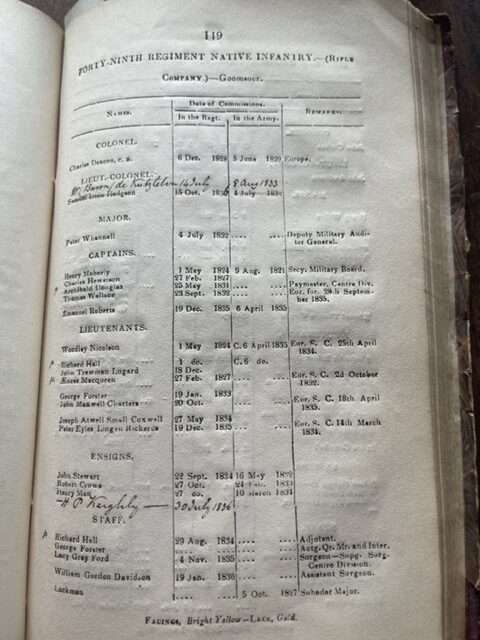 119
FORTY-NINTH REGIMENT NATIVE INFANTRY.—(RIFLE
COMPANY.)—GOOMSOOR.
NAMES. Date of Commissions. REMARKS.
In the Regt. In the Army.
COLONEL.
Charles Deacon, C. B. 6 Dec. 1828 5 June 1829 Europe.
LIEUT.-COLONEL.
Baron de Kutzleben 14 July 8 Aug 1833
Samuel Irton Hodgson 15 Oct. 1836 4 July
MAJOR.
Peter Whannell 4 July 1832 .... .... Deputy Military Audi-
tor General.
CAPTAINS.
Henry Moberly 1 May 1824 9 Aug. 1821 Secy. Military Board.
Charles Hewetson 27 Feb. 1827
Archibald Douglas 25 May 1831 .... .... Paymaster, Centre Div.
Thomas Wallace 23 Sept. 1832 .... .... Eur. fur. 29th Septem-
ber 1835.
Emanuel Roberts 19 Dec. 1835 6 April 1835
LIEUTENANTS.
Woodley Nicolson 1 May 1824 C. 6 April 1835 Eur. S. C. 25th April
1834.
Richard Hall 1 do. C. 6 do.
John Trewman Lugard 18 Dec.
Æneas Macqueen 27 Feb. 1827 .... .... Eur. S. C. 2d October
1832.
George Forster 19 Jan. 1833
John Maxwell Charteris 20 Oct. .... .... Eur. S. C. 18th April
1835.
Joseph Atwell Small Coxwell 27 May 1834
Peter Eyles Lingen Rickards 19 Dec. 1835 .... .... Eur. S. C. 14th March
1834.
ENSIGNS.
John Stewart 22 Sept. 1834 16 May
Robert Crowe 27 Oct. 24 Feb. 1833
Henry Man 27 do. 10 March 1834
H P Keighly — 30 July 1836
STAFF.
Richard Hall 29 Aug. 1834 .... .... Adjutant.
George Forster .... .... .... Actg. Qr. Mr. and Inter.
Lacy Gray Ford 4 Nov. 1835 .... .... Surgeon—Supg. Surg.
Centre Division.
William Gordon Davidson 19 Jan. 1836 .... .... Assistant Surgeon.
Lockman .... .... 5 Oct. 1827 Subadar Major.
FACINGS, Bright Yellow—LACE, Gold.